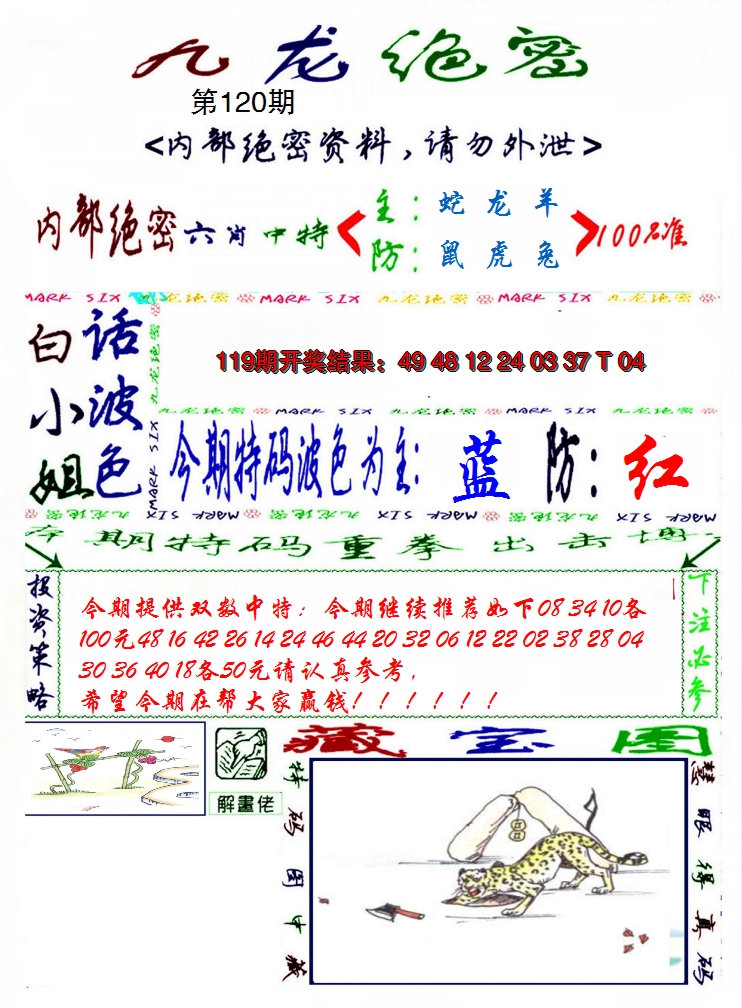 九龙绝密
第120期
<内部绝密资料,请勿外泄>
内部绝密六肖中特
主:蛇龙羊
防:鼠虎兔
100%准
MARK SIX 九龙绝密 MARK SIX 九龙绝密 MARK SIX 九龙绝密
白小姐
话波色
九龙绝密 MARK SIX
119期开奖结果：49 48 12 24 03 37 T 04
九龙绝密 MARK SIX 九龙绝密 MARK SIX 九龙绝密 MARK SIX
今期特码波色为主: 蓝 防: 红
九龙绝密 MARK SIX 九龙绝密 MARK SIX 九龙绝密 MARK SIX
本期特码重拳出击博
投资策略
今期提供双数中特；今期继续推荐如下08 34 10各
100元48 16 42 26 14 24 46 44 20 32 06 12 22 02 38 28 04
30 36 40 18各50元请认真参考，
希望今期在帮大家赢钱！！！！！！
下注必参
藏宝图
解畫佬
特码图中藏
慧眼得真码